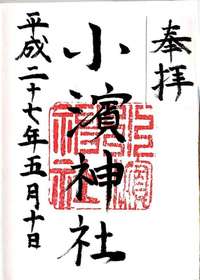 奉拝
小濱神社
平成二十七年五月十日